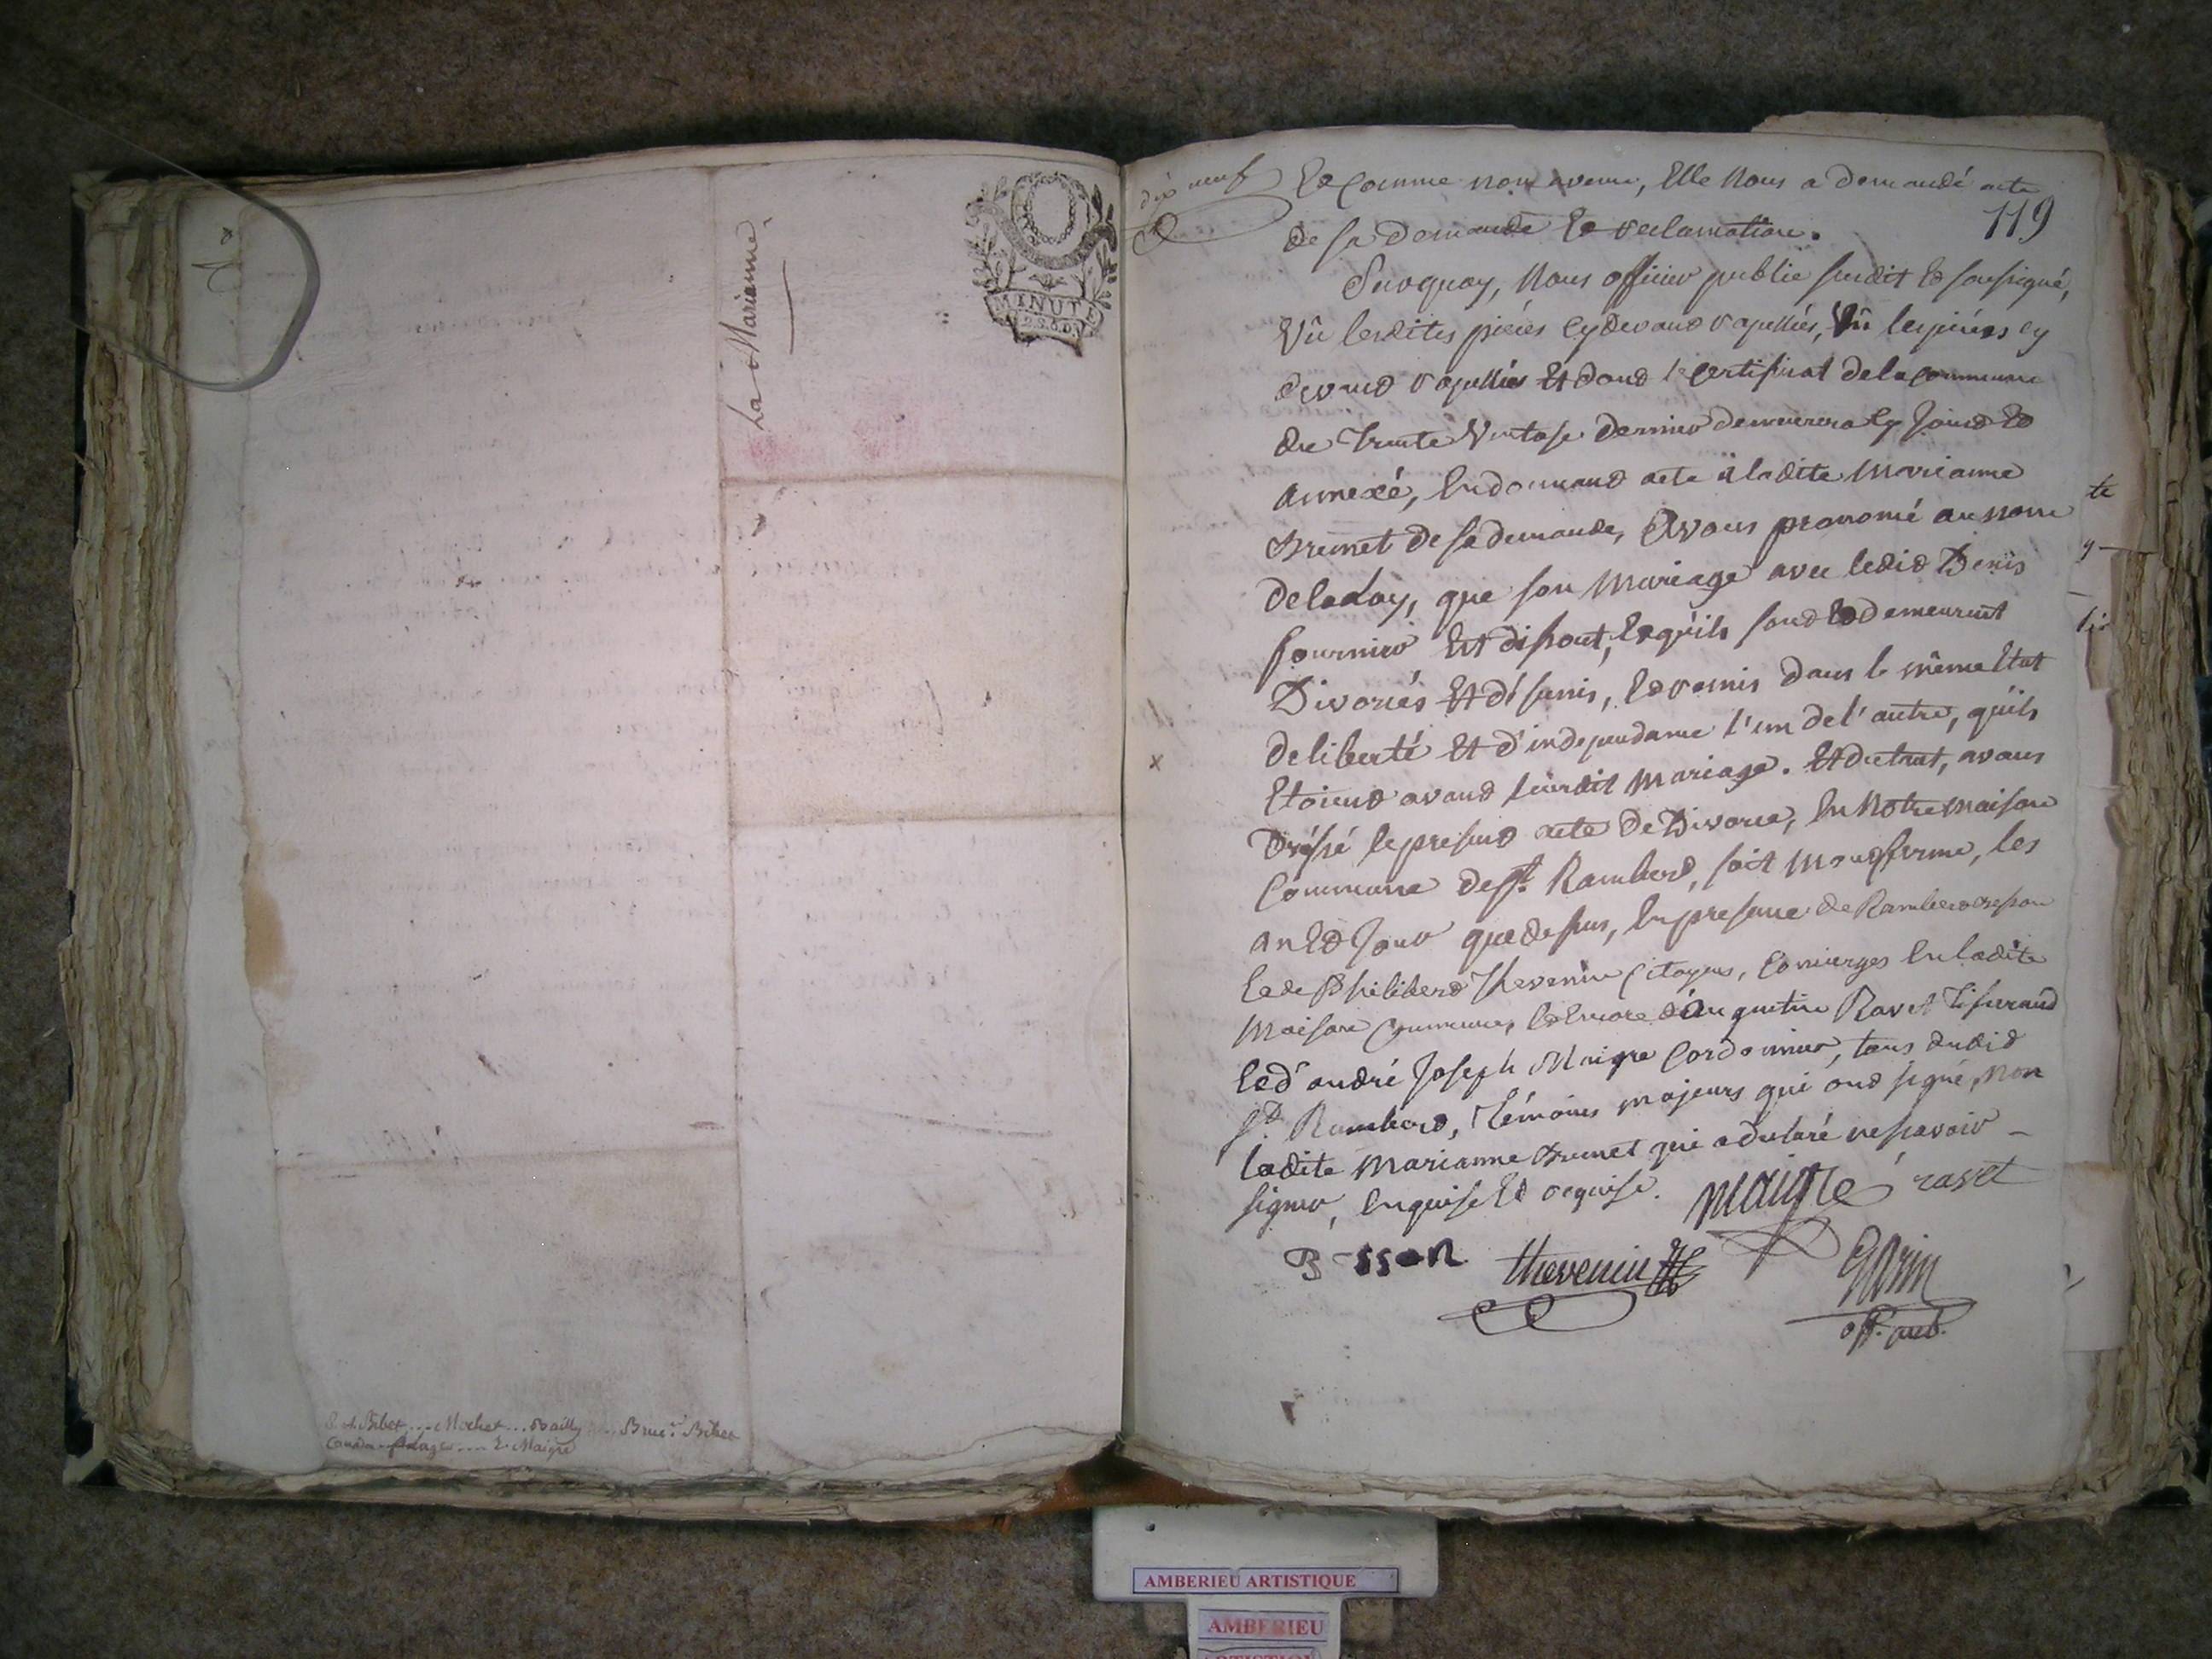 La Marianne
MINUTE
Bibet .... Mochet ... Bailly .... Brun. Bibet
.... E. Maigre
dix neuf
119
Et comme non avenu, Elle Nous a demandé acte
de sa demande Et reclamation.
Surquoy, Nous officier public susdit Et soussigné,
Vû lesdites pièces cy devant rapellées, Vû les pièces cy
devant rapellées Et dont le certificat de la commune
du Trente Ventose dernier demeurera cy joint Et
annexé, En donnant acte à ladite Marianne
de sa demande, Avons prononcé au nom
De la Loy, que son Mariage avec ledit Denis
fournier Est dissout, Et qu'ils sont Et demeurent
Divorcés Et désunis, Et remis dans le même Etat
de liberté Et d'independance l'un de l'autre, qu'ils
Etoient avant leurdit Mariage. Et du tout, avons
Dréssé le present acte de Divorce, En Notre maison
Commune de St. Rambert, soit Montferme, les
an Et Jour que dessus, En presence de Rambert
Et de Philibert Thevenin Citoyens, Concierges En ladite
Maison Commune, Et Encore d'Augustin Ravet Tisserand
Et d'andré Joseph Maigre Cordonnier, tous dudit
St. Rambert, Témoins majeurs qui ont signé, Non
ladite Marianne qui a declaré ne savoir
signer, Enquise Et requise. maigre ravet
thevenin
off. pub.
te
y
AMBERIEU ARTISTIQUE
AMBERIEU
ARTISTIQUE